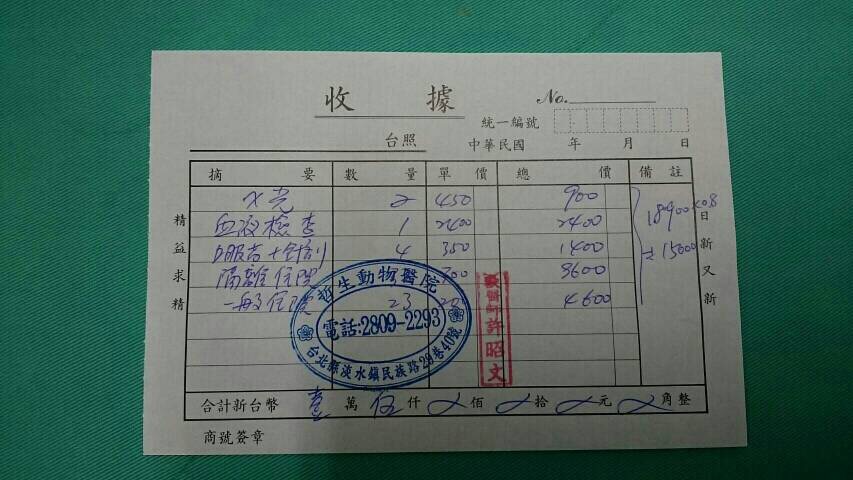 收據
No.
統一編號
台照 中華民國 年 月 日
摘要 數量 單價 總價 備註
X光 2 450 900
血液檢查 1 2400 2400
口服藥+針劑 4 350 1400
隔離住院 9600
一般住院 23 4600
18900 × 0.8
≒ 15000
精益求精
日新又新
哲生動物醫院
電話:2809-2293
台北縣淡水鎮民族路29巷40號
獸醫師許昭文
合計新台幣 壹萬伍仟 佰 拾 元 角整
商號簽章